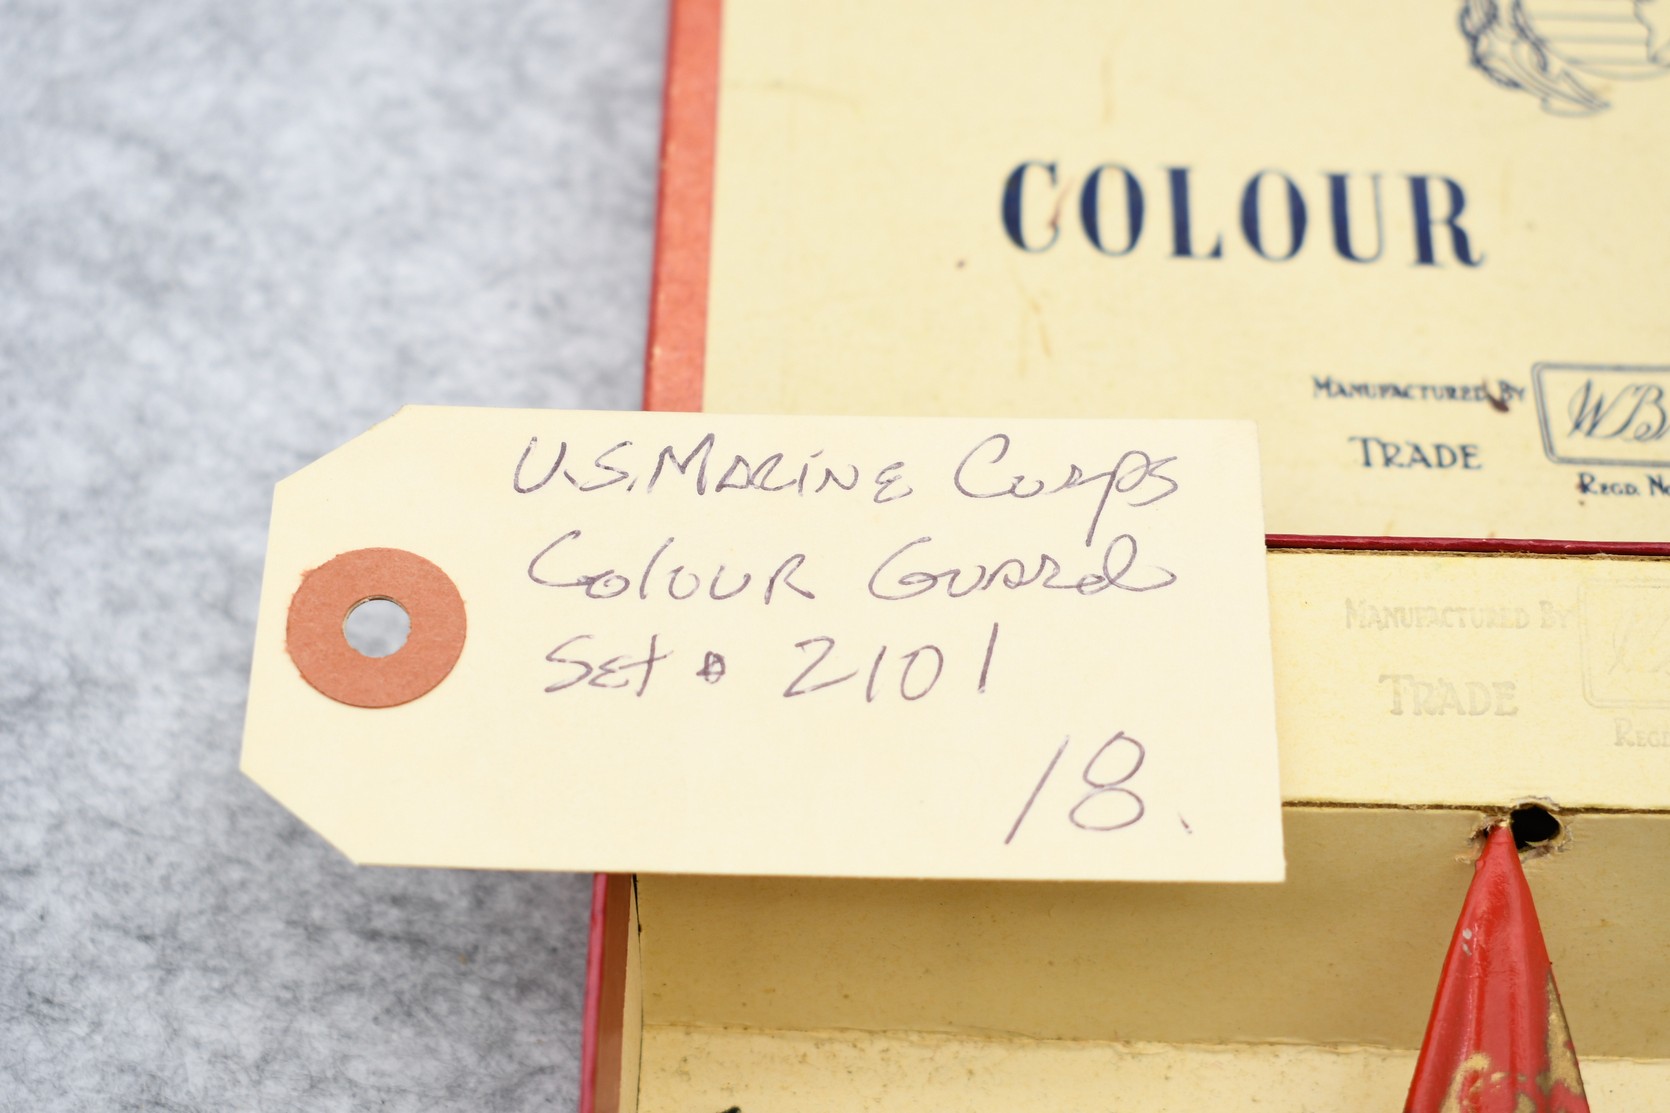 COLOUR
MANUFACTURED BY
TRADE
REGD. No
U.S. MARINE Corps
Colour Guard
Set # 2101
18.
MANUFACTURED BY
TRADE
REGD